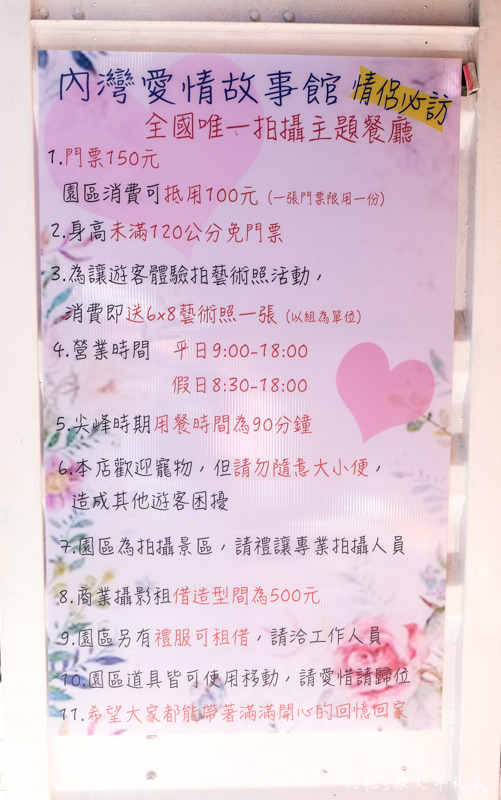 內灣愛情故事館 情侶必訪
全國唯一拍攝主題餐廳
1.門票150元
園區消費可抵用100元（一張門票限用一份）
2.身高未滿120公分免門票
3.為讓遊客體驗拍藝術照活動，
消費即送6x8藝術照一張（以組為單位）
4.營業時間 平日9:00-18:00
假日8:30-18:00
5.尖峰時期用餐時間為90分鐘
6.本店歡迎寵物，但請勿隨意大小便，
造成其他遊客困擾
7.園區為拍攝景區，請禮讓專業拍攝人員
8.商業攝影租借造型間為500元
9.園區另有禮服可租借，請洽工作人員
10.園區道具皆可使用移動，請愛惜請歸位
11.希望大家都能帶著滿滿開心的回憶回家